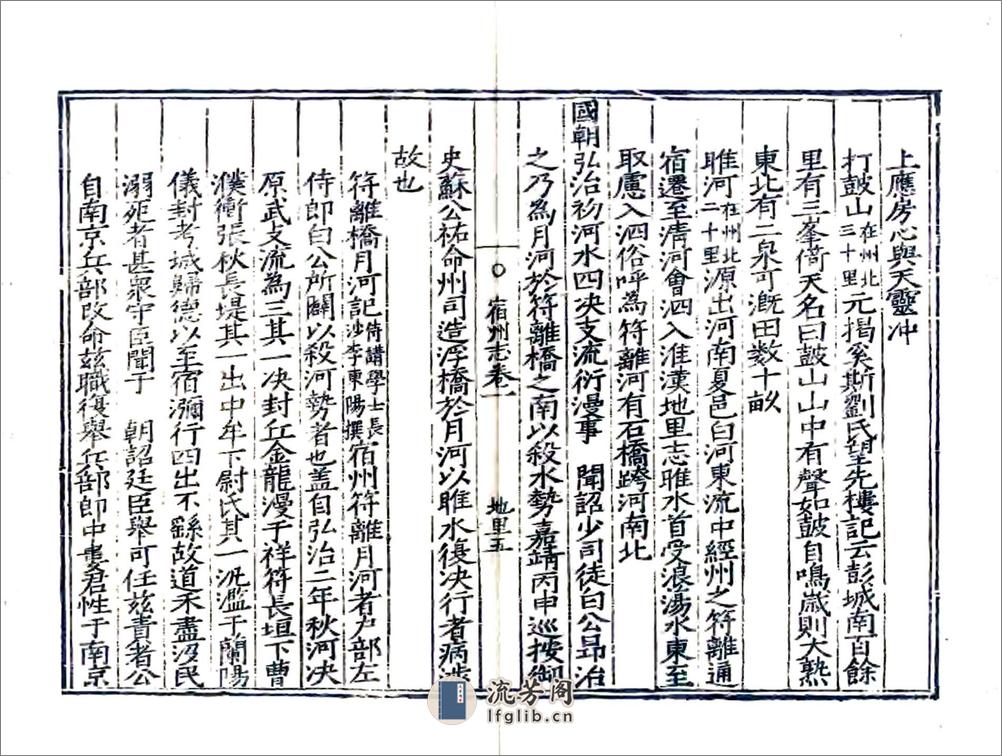 上應房心與天靈冲
打鼓山在州北三十里元揭奚斯劉氏望先樓記云彭城南百餘
里有三峯倚天名曰鼓山山中有聲如鼓自鳴歲則大熟
東北有二泉可溉田數十畝
睢河在州北二十里源出河南夏邑白河東流中經州之符離通
宿遷至清河會泗入淮漢地里志睢水首受浪湯水東至
取慮入泗俗呼為符離河有石橋跨河南北
國朝弘治初河水四决支流衍漫事 聞詔少司徒白公昂治
之乃為月河於符離橋之南以殺水勢嘉靖丙申巡按御
宿州志卷一 地里五
史蘇公祐命州司造浮橋於月河以睢水復决行者病涉
故也
符離橋月河記侍講學士長沙李東陽撰宿州符離月河者户部左
侍郎白公所闢以殺河勢者也盖自弘治二年秋河决
原武支流為三其一决封丘金龍漫于祥符長垣下曹
濮衝張秋長堤其一出中牟下尉氏其一汎濫于蘭陽
儀封考城歸德以至宿瀰行四出不繇故道禾盡沒民
溺死者甚衆守臣聞于 朝詔廷臣舉可任兹責者公
自南京兵部改命兹職復舉兵部郎中婁君性于南京
流芳阁
lfglib.cn